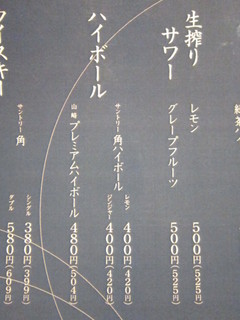 生搾りサワー
レモン 500円(525円)
グレープフルーツ 500円(525円)
ハイボール
サントリー角ハイボール
レモン 400円(420円)
ジンジャー 400円(420円)
山崎 プレミアムハイボール 480円(504円)
ウイスキー
サントリー 角
シングル 380円(399円)
ダブル 580円(609円)